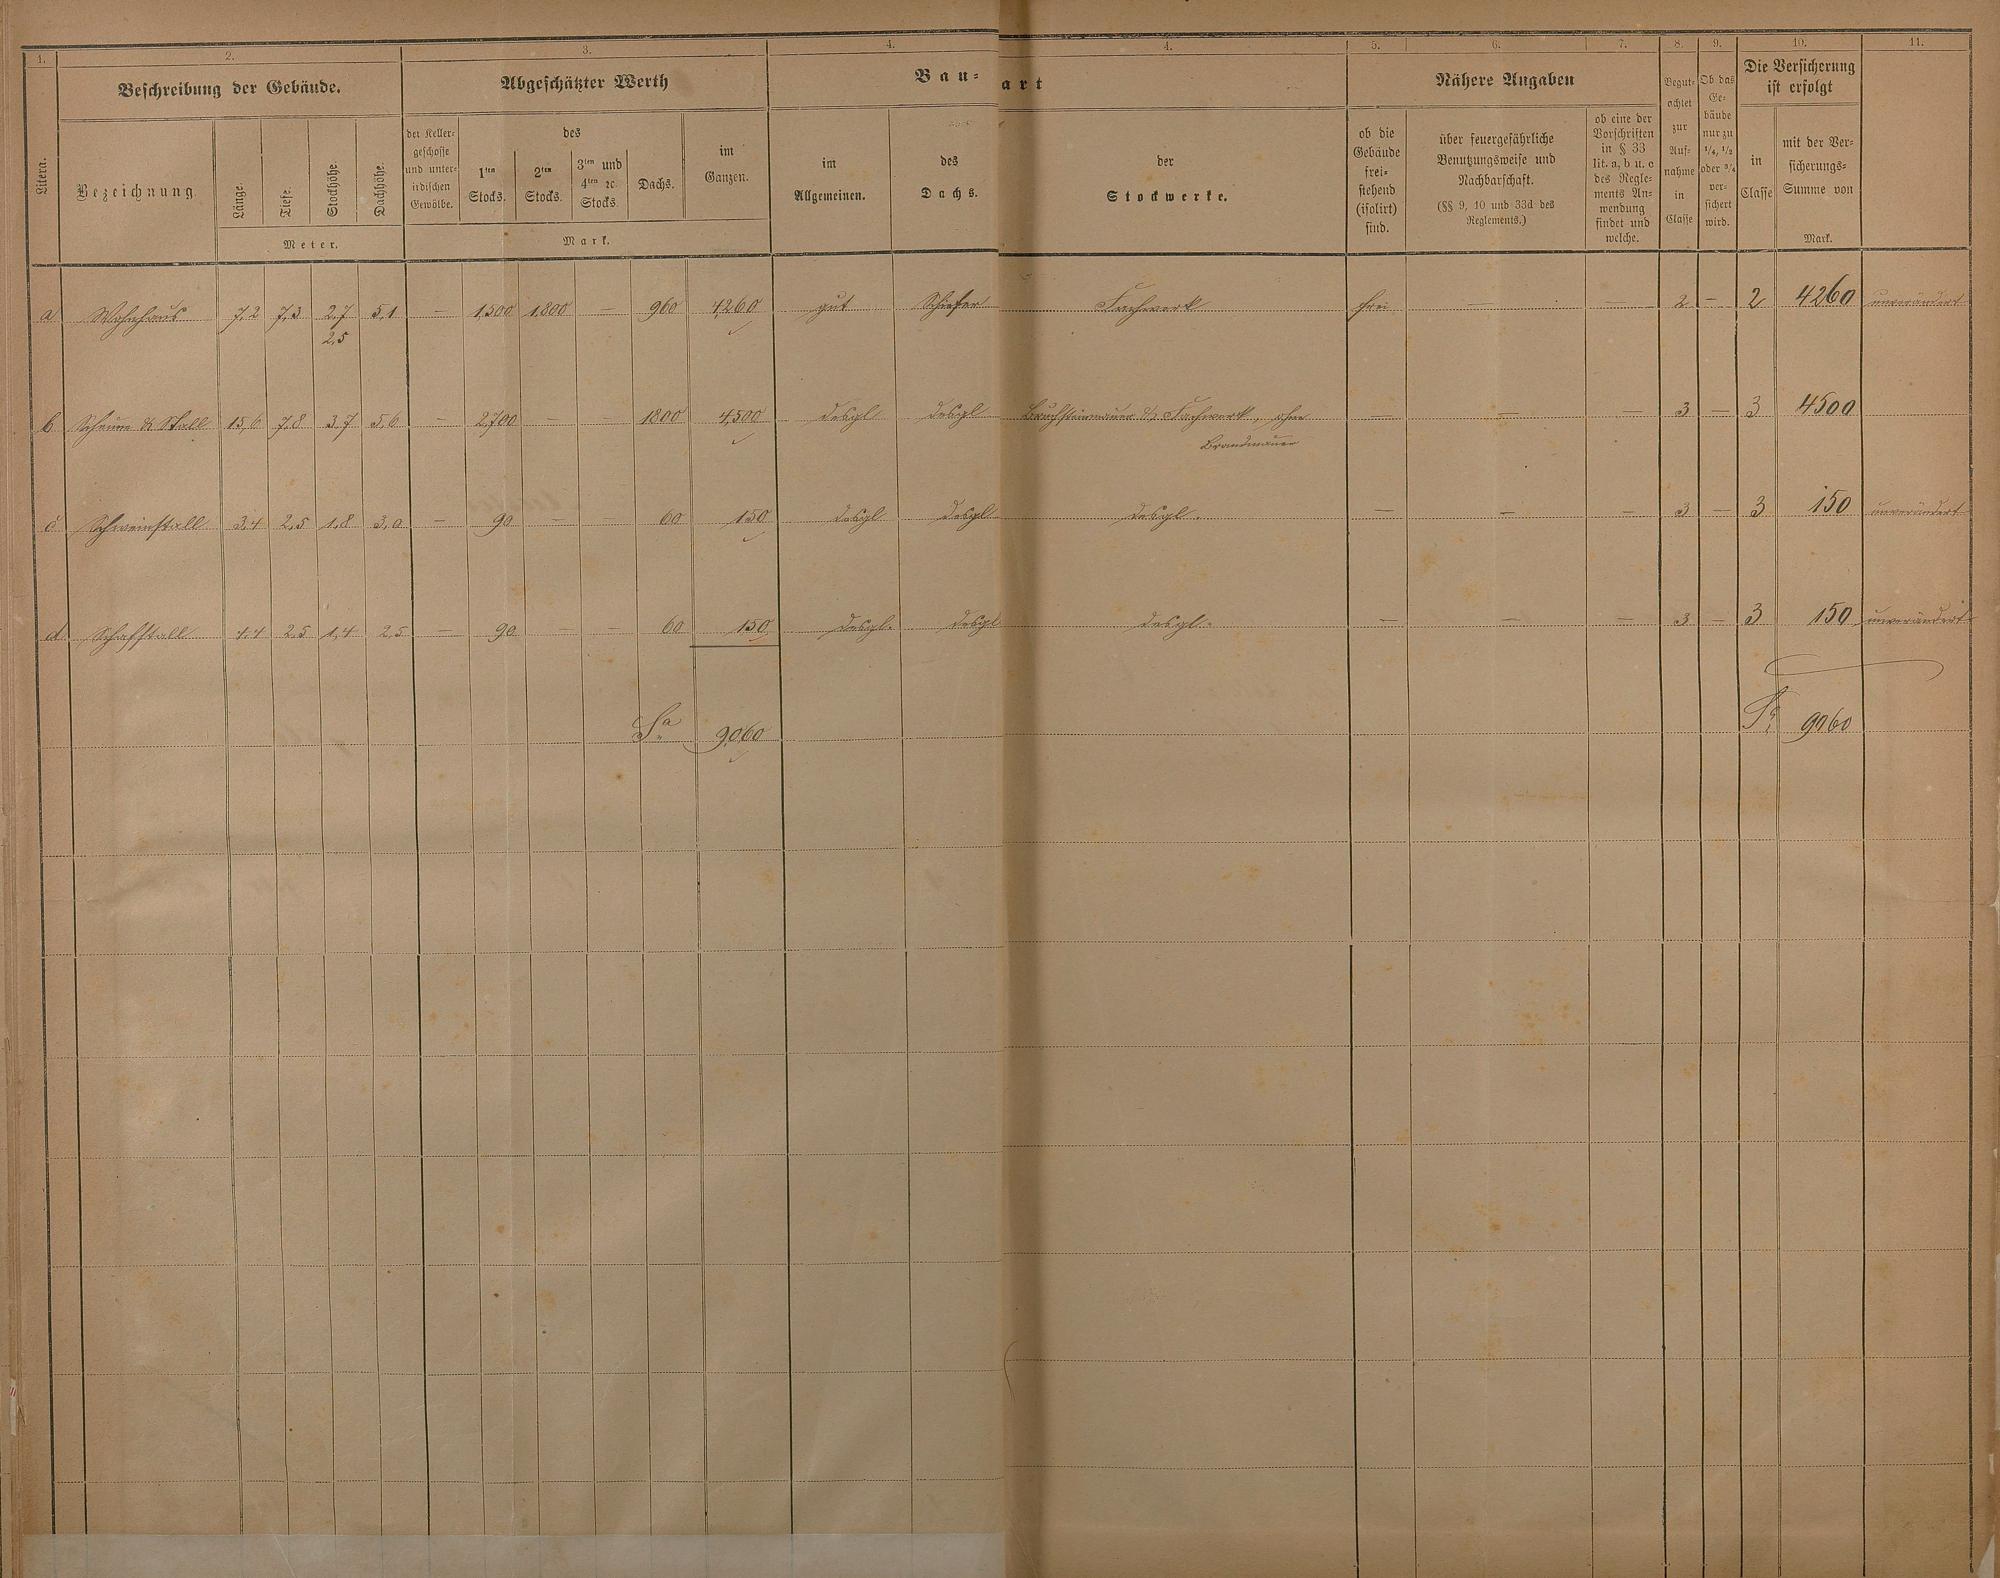 1. 2. 3. 4. 4. 5. 6. 7. 8. 9. 10. 11.
Beschreibung der Gebäude. Abgeschätzter Werth Bau- art Nähere Angaben Die Versicherung ist erfolgt
Litera.
Bezeichnung.
Länge.
Tiefe.
Stockhöhe.
Dachhöhe.
Meter.
der Keller-
geschosse
und unter-
irdischen
Gewölbe.
des
1ten
Stocks.
2ten
Stocks.
3ten und
4ten ꝛc.
Stocks.
Dachs.
im
Ganzen.
Mark.
im
Allgemeinen.
des
Dachs.
der
Stockwerke.
ob die
Gebäude
frei-
stehend
(isolirt)
sind.
über feuergefährliche
Benutzungsweise und
Nachbarschaft.
(§§ 9, 10 und 33d des
Reglements.)
ob eine der
Vorschriften
in § 33
lit. a, b u. c
des Regle-
ments An-
wendung
findet und
welche.
Begut-
achtet
zur
Auf-
nahme
in
Classe
Ob das
Ge-
bäude
nur zu
1/4, 1/2
oder 3/4
ver-
sichert
wird.
in
Classe
mit der Ver-
sicherungs-
Summe von
Mark.
a Wohnhaus 7,2 7,3 2,7 5,1 — 1,500 1,800 — 960 4,260 gut Schiefer Fachwerk frei — — 2 — 2 4260 unverändert
2,5
b Scheune & Stall 15,6 7,8 3,7 5,6 — 2,700 — — 1800 4,500 desgl desgl Bruchsteinmauer & Fachwerk, ohne — — — 3 — 3 4500
Brandmauer
c Schweinstall 3,4 2,5 1,8 3,0 — 90 — 60 150 desgl desgl desgl. — — — 3 — 3 150 unverändert
d Schafstall 4,4 2,5 1,4 2,5 — 90 — — 60 150 desgl. desgl desgl. — — — 3 — 3 150 unverändert
Sa 9,060 Sa 9060